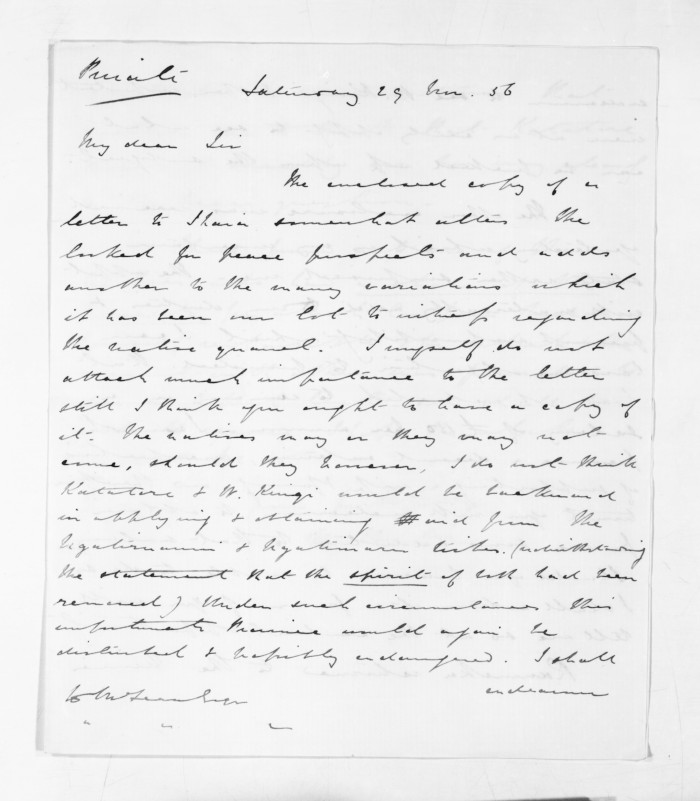 Private
Saturday 29 Nov. 56
My dear Sir
The enclosed copy of a
letter to Ihaia somewhat alters the
looked for peace prospects and adds
another to the many variations which
it has been our lot to witness regarding
the native quarrel. I myself do not
attach much importance to the letter
still I think you ought to have a copy of
it. The natives may or they may not
come, should they however, I do not think
Katatore & W. Kingi would be backward
in applying & obtaining aid from the
Ngatiruanui & tribes. (notwithstanding
the statement that the spirit of ill had been
removed) Under such circumstances this
unfortunate Province would again be
disturbed & possibly endangered. I shall
endeavour
to McLean Esqr
" " "